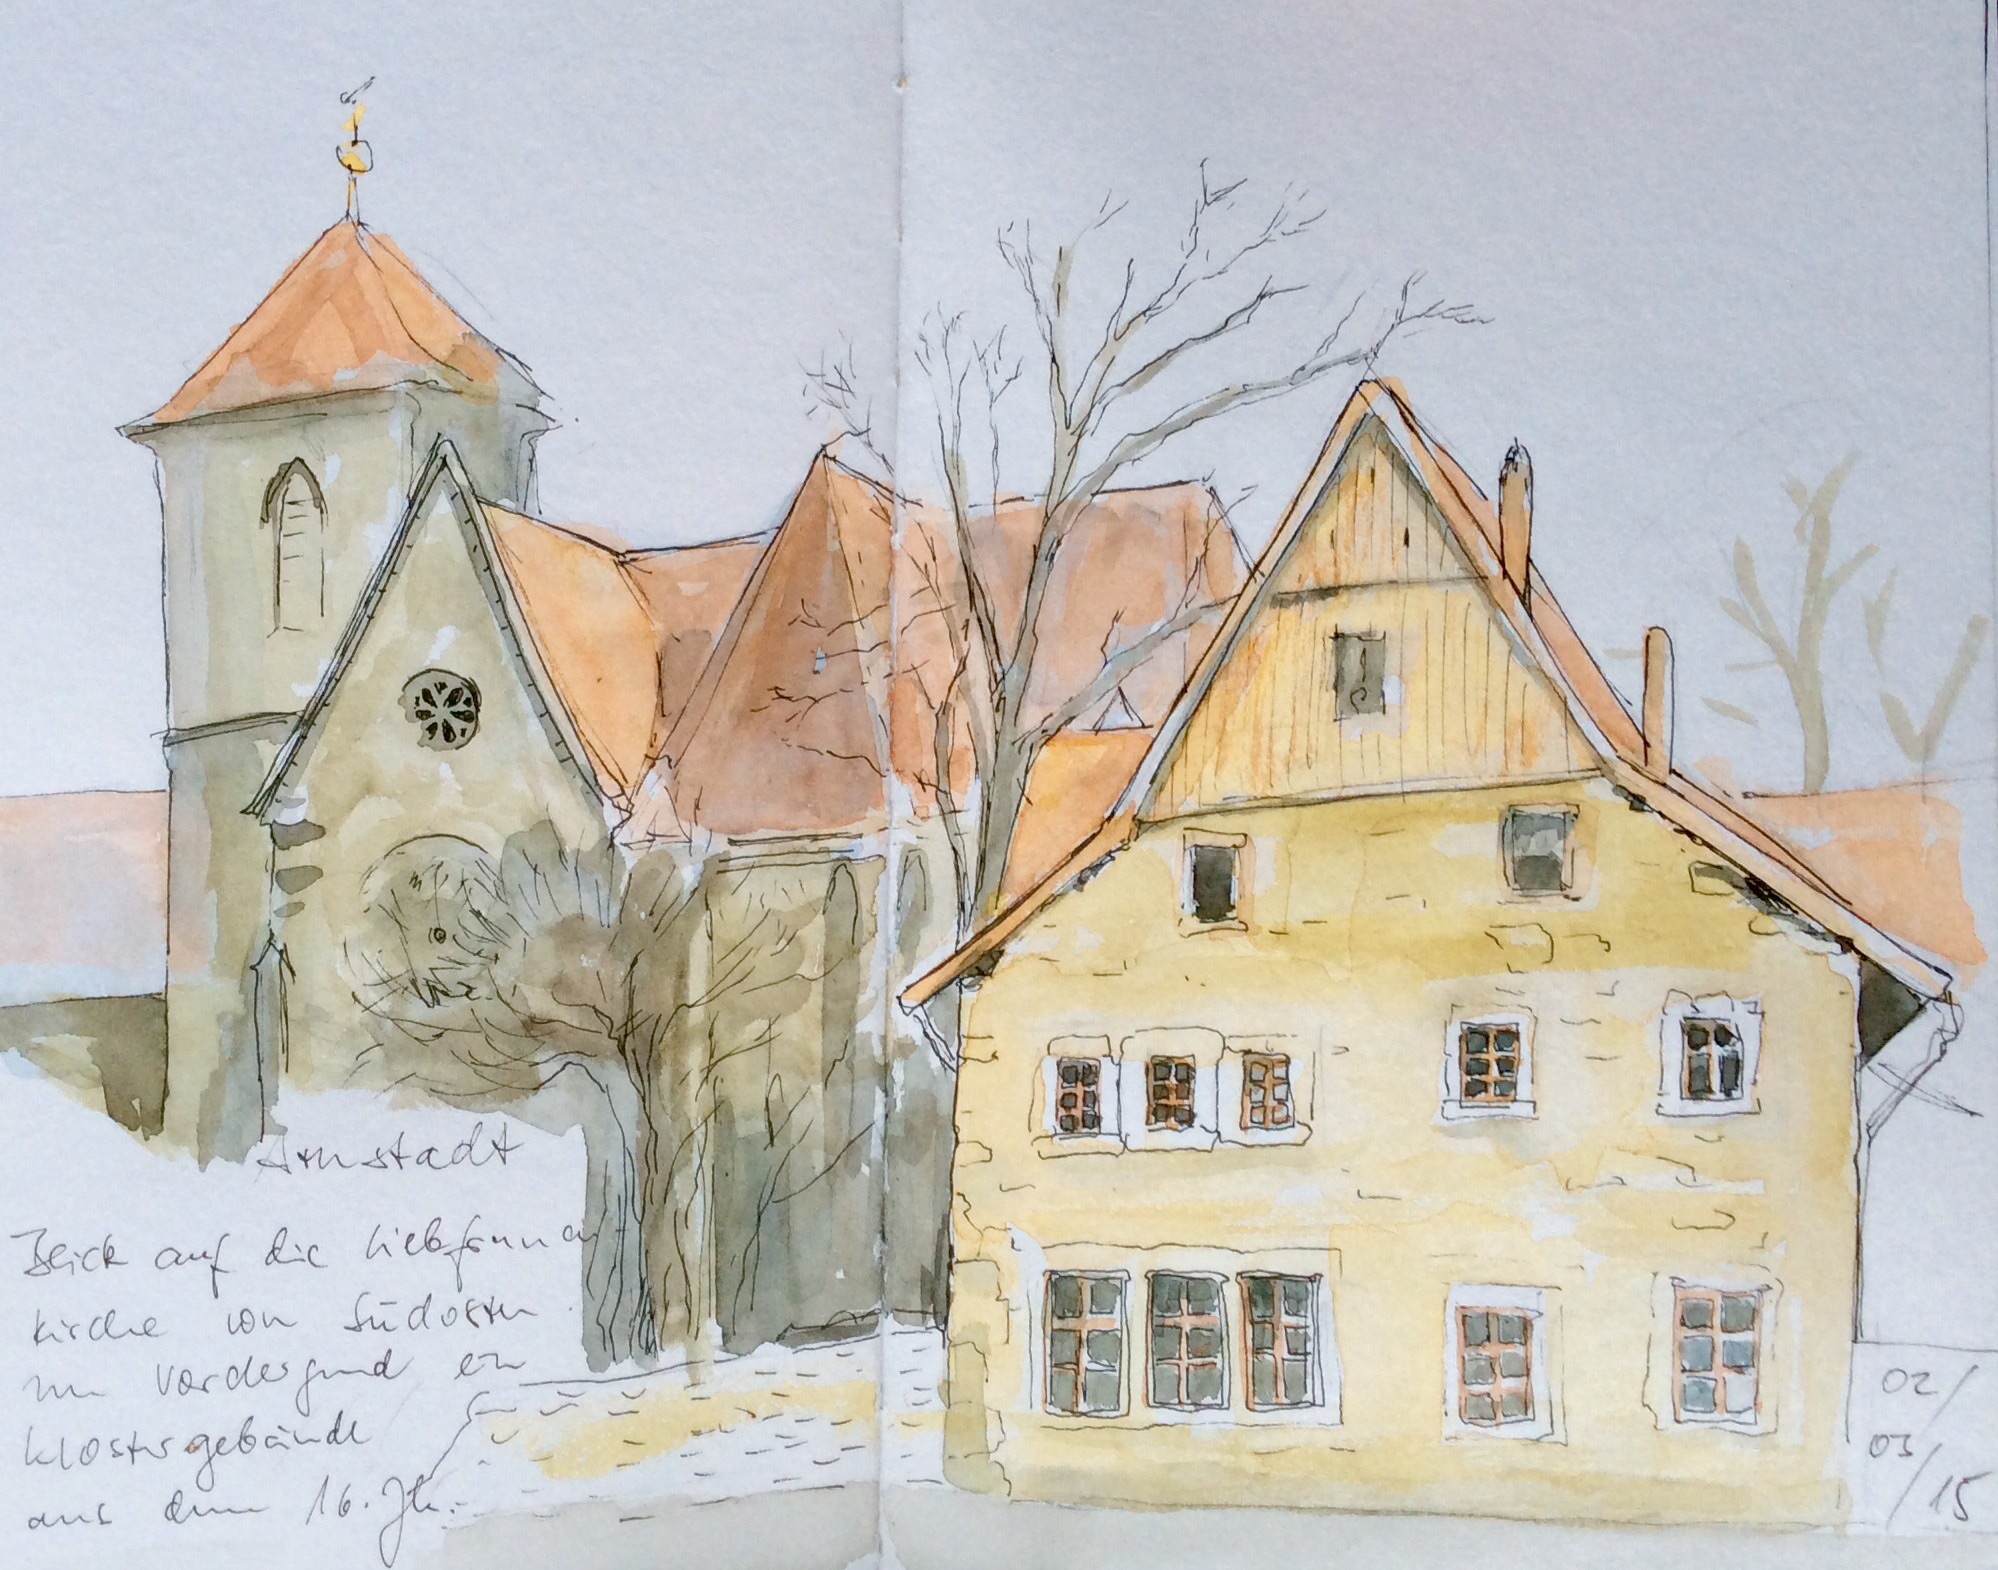 Arnstadt
Blick auf die Liebfrauen
kirche von Südosten
im Vordergrund ein
Klostergebäude
aus dem 16. Jh.
02/
03/
15